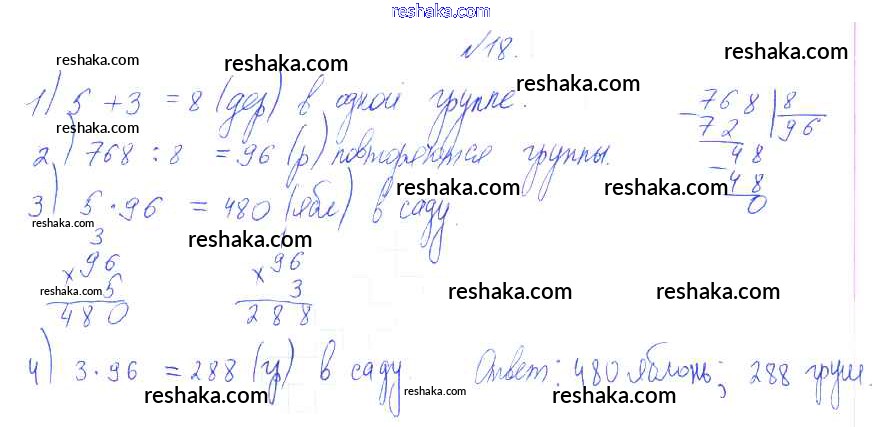 reshaka.com
№18.
reshaka.com reshaka.com reshaka.com
1) 5 + 3 = 8 (дер) в одной группе.
reshaka.com
768 | 8
72 96
48
48
0
2) 768 : 8 = 96 (р) повторяются группы.
reshaka.com reshaka.com reshaka.com
3) 5 · 96 = 480 (ябл) в саду.
reshaka.com reshaka.com
3
× 96
5
480
1
× 96
3
288
reshaka.com reshaka.com reshaka.com
4) 3 · 96 = 288 (гр) в саду. Ответ: 480 яблонь; 288 груш.
reshaka.com reshaka.com reshaka.com